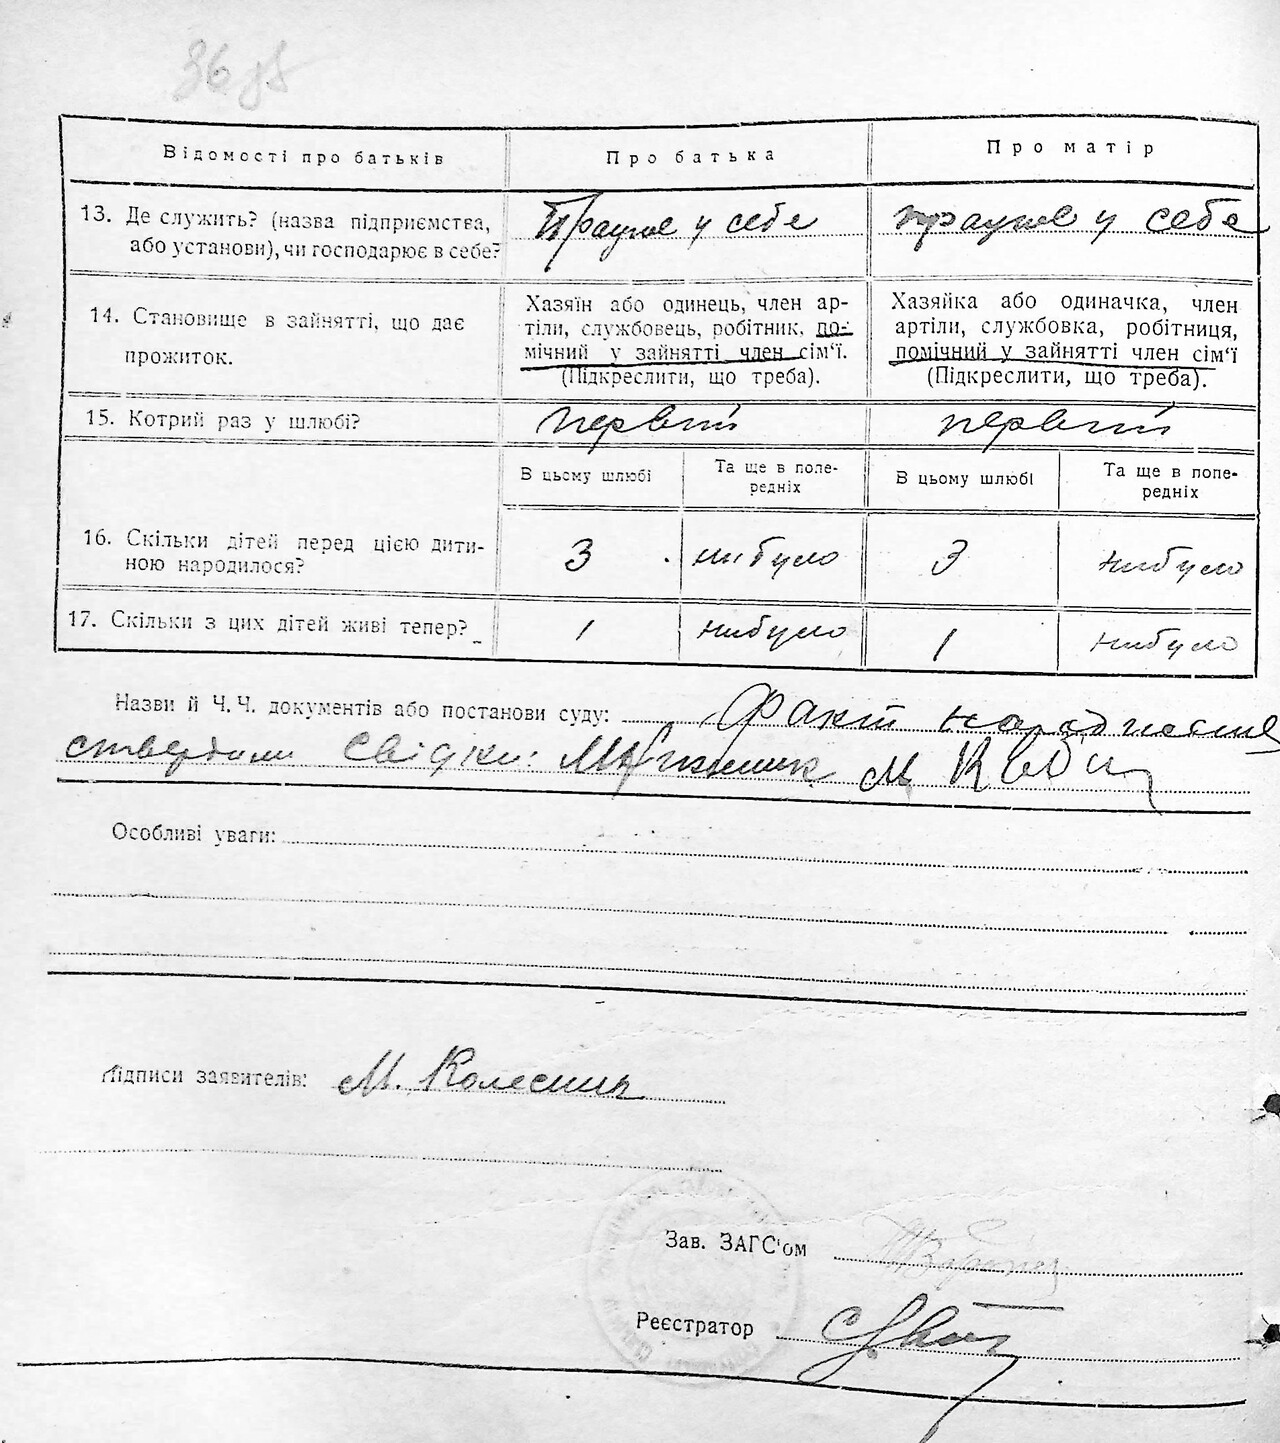 36 зв
Відомості про батьків
Про батька
Про матір
13. Де служить? (назва підприємства,
або установи), чи господарює в себе?
Працює у себе
працює у себе
14. Становище в зайнятті, що дає
прожиток.
Хазяїн або одинець, член ар-
тіли, службовець, робітник, по-
мічний у зайнятті член сім'ї.
(Підкреслити, що треба).
Хазяйка або одиначка, член
артіли, службовка, робітниця,
помічний у зайнятті член сім'ї
(Підкреслити, що треба).
15. Котрий раз у шлюбі?
первий
первий
В цьому шлюбі
Та ще в попе-
редніх
В цьому шлюбі
Та ще в попе-
редніх
16. Скільки дітей перед цією дити-
ною народилося?
3
нибуло
3
нибуло
17. Скільки з цих дітей живі тепер?
1
нибуло
1
нибуло
Назви й Ч.Ч. документів або постанови суду: Факт народження
ствердили Свідки: М
Особливі уваги:
Підписи заявителів: М. Колесник
Зав. ЗАГС'ом
Реєстратор